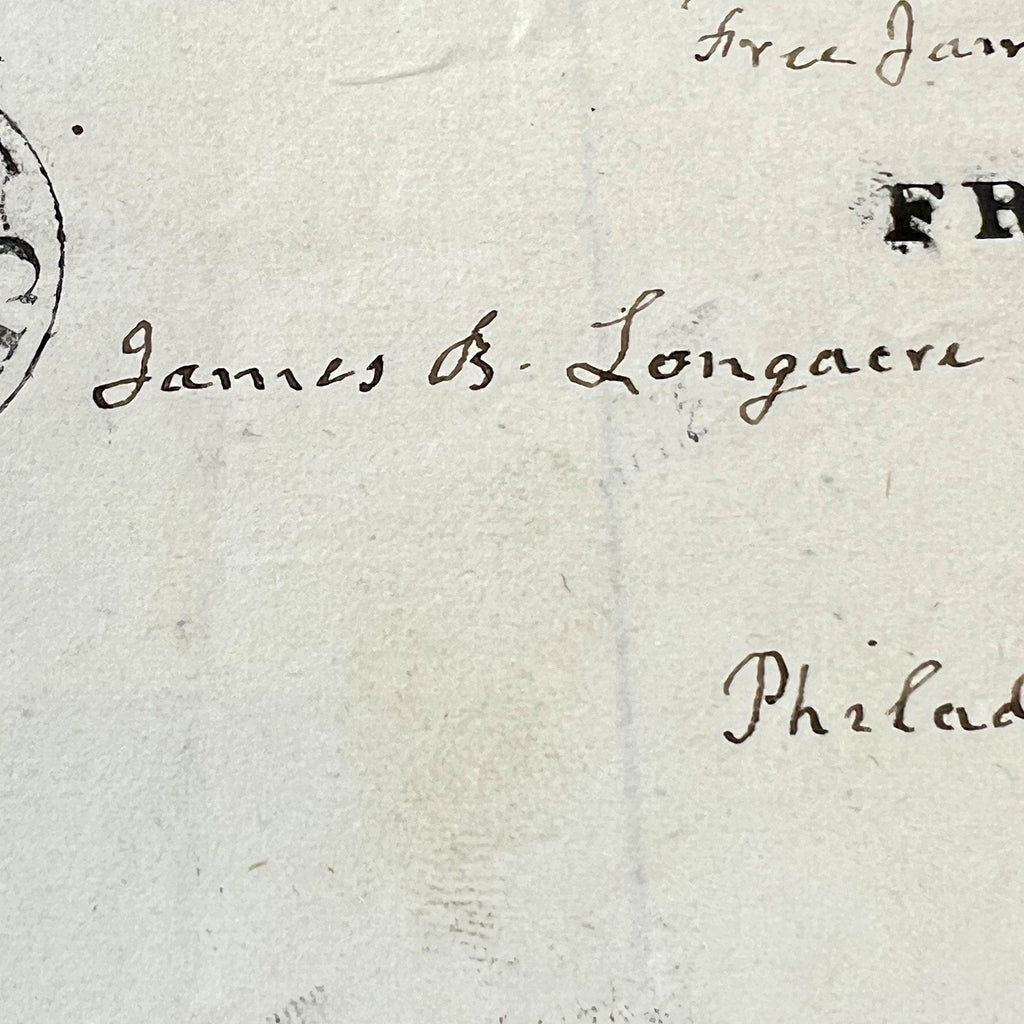 Free Jam
FR
James B. Longacre
Philad